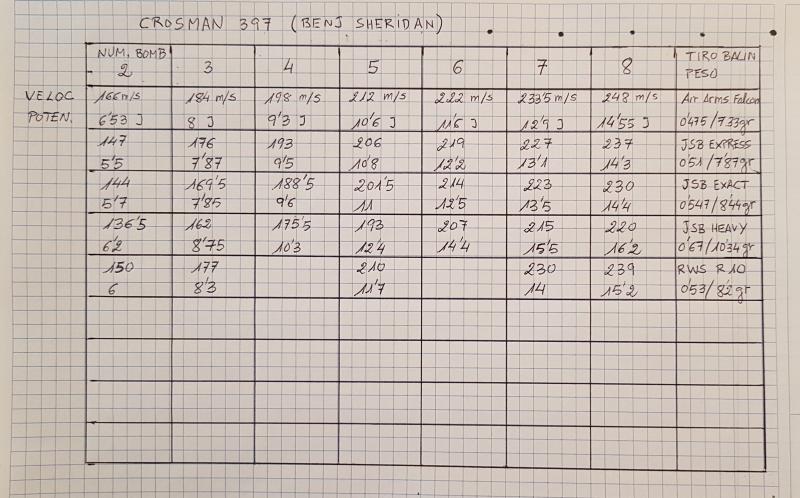 CROSMAN 397 (BENJ SHERIDAN)
NUM. BOMB 2 3 4 5 6 7 8 TIRO BALIN PESO
VELOC 166 m/s 184 m/s 198 m/s 212 m/s 222 m/s 233'5 m/s 248 m/s Air Arms Falcon
POTEN. 6'53 J 8 J 9'3 J 10'6 J 11'6 J 12'9 J 14'55 J 0'475/7'33gr
147 176 193 206 219 227 237 JSB EXPRESS
5'5 7'87 9'5 10'8 12'2 13'1 14'3 0'51/7'87gr
144 169'5 188'5 201'5 214 223 230 JSB EXACT
5'7 7'85 9'6 11 12'5 13'5 14'4 0'547/8'44gr
136'5 162 175'5 193 207 215 220 JSB HEAVY
6'2 8'75 10'3 12'4 14'4 15'5 16'2 0'67/10'34gr
150 177 210 230 239 RWS R10
6 8'3 11'7 14 15'2 0'53/8'2gr